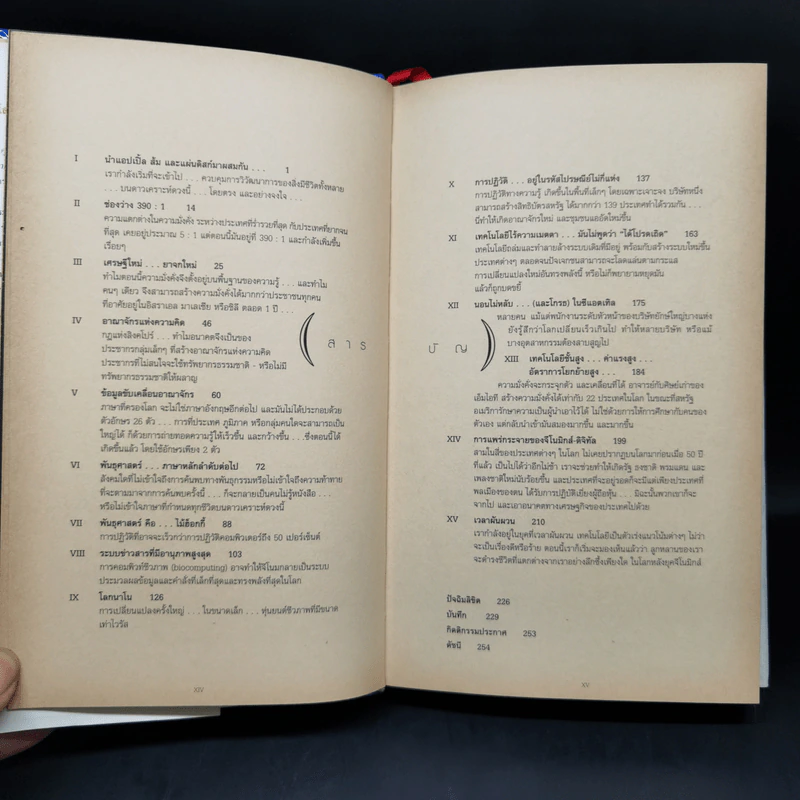 I นำแอปเปิ้ล ส้ม และแผ่นดิสก์มาผสมกัน . . . 1
เรากำลังเริ่มที่จะเข้าไป . . . ควบคุมการวิวัฒนาการของสิ่งมีชีวิตทั้งหลาย
. . . บนดาวเคราะห์ดวงนี้ . . . โดยตรง และอย่างจงใจ . . .
II ช่องว่าง 390 : 1 14
ความแตกต่างในความมั่งคั่ง ระหว่างประเทศที่ร่ำรวยที่สุด กับประเทศที่ยากจน
ที่สุด เคยอยู่ประมาณ 5 : 1 แต่ตอนนี้มันอยู่ที่ 390 : 1 และกำลังเพิ่มขึ้น
เรื่อยๆ
III เศรษฐีใหม่ . . . ยาจกใหม่ 25
ทำไมตอนนี้ความมั่งคั่งจึงตั้งอยู่บนพื้นฐานของความรู้ . . . และทำไม
คนๆ เดียว จึงสามารถสร้างความมั่งคั่งได้มากกว่าประชาชนทุกคน
ที่อาศัยอยู่ในอิสราเอล มาเลเซีย หรือชิลี ตลอด 1 ปี . . .
IV อาณาจักรแห่งความคิด 46
กฎแห่งสิงคโปร์ . . . ทำไมอนาคตจึงเป็นของ
ประชากรกลุ่มเล็กๆ ที่สร้างอาณาจักรแห่งความคิด
ประชากรที่ไม่สนใจจะใช้ทรัพยากรธรรมชาติ - หรือไม่มี
ทรัพยากรธรรมชาติให้ผลาญ
V ข้อมูลขับเคลื่อนอาณาจักร 60
ภาษาที่ครองโลก จะไม่ใช่ภาษาอังกฤษอีกต่อไป และมันไม่ได้ประกอบด้วย
ตัวอักษร 26 ตัว . . . การที่ประเทศ ภูมิภาค หรือกลุ่มคนใดจะสามารถเป็น
ใหญ่ได้ ก็ด้วยการถ่ายทอดความรู้ให้เร็วขึ้น และกว้างขึ้น . . .ซึ่งตอนนี้ได้
เกิดขึ้นแล้ว โดยใช้อักษรเพียง 2 ตัว
VI พันธุศาสตร์ . . . ภาษาหลักลำดับต่อไป 72
สังคมใดที่ไม่เข้าใจถึงการค้นพบทางพันธุกรรมหรือไม่เข้าใจถึงความท้าทาย
ที่จะตามมาจากการค้นพบครั้งนี้ . . . ก็จะกลายเป็นคนไม่รู้หนังสือ . . .
หรือไม่เข้าใจภาษาที่กำหนดทุกชีวิตบนดาวเคราะห์ดวงนี้
VII พันธุศาสตร์ คือ . . . ไม้ฮ็อกกี้ 88
การปฏิวัติที่อาจจะเร็วกว่าการปฏิวัติคอมพิวเตอร์ถึง 50 เปอร์เซ็นต์
VIII ระบบข่าวสารที่มีอานุภาพสูงสุด 103
การคอมพิวท์ชีวภาพ (biocomputing) อาจทำให้จีโนมกลายเป็นระบบ
ประมวลผลข้อมูลและคำสั่งที่เล็กที่สุดและทรงพลังที่สุดในโลก
IX โลกนาโน 126
การเปลี่ยนแปลงครั้งใหญ่ . . . ในขนาดเล็ก . . . หุ่นยนต์ชีวภาพที่มีขนาด
เท่าไวรัส
XIV
(สาร
บัญ)
X การปฏิวัติ . . . อยู่ในรหัสไปรษณีย์ไม่กี่แห่ง 137
การปฏิวัติทางความรู้ เกิดขึ้นในพื้นที่เล็กๆ โดยเฉพาะเจาะจง บริษัทหนึ่ง
สามารถสร้างสิทธิบัตรสหรัฐ ได้มากกว่า 139 ประเทศทำได้รวมกัน . . .
นี่ทำให้เกิดอาณาจักรใหม่ และชุมชนแออัดใหม่ขึ้น
XI เทคโนโลยีไร้ความเมตตา . . . มันไม่พูดว่า "ได้โปรดเถิด" 163
เทคโนโลยีถล่มและทำลายล้างระบบเดิมที่มีอยู่ พร้อมกับสร้างระบบใหม่ขึ้น
ประเทศต่างๆ ตลอดจนปัจเจกชนสามารถจะโลดแล่นตามกระแส
การเปลี่ยนแปลงใหม่อันทรงพลังนี้ หรือไม่ก็พยายามหยุดมัน
แล้วก็ถูกบดขยี้
XII นอนไม่หลับ . . . (และโกรธ) ในซีแอตเทิล 175
หลายคน แม้แต่พนักงานระดับหัวหน้าของบริษัทยักษ์ใหญ่บางแห่ง
ยังรู้สึกว่าโลกเปลี่ยนเร็วเกินไป ทำให้หลายบริษัท หรือแม้
บางอุตสาหกรรมต้องสาบสูญไป
XIII เทคโนโลยีชั้นสูง . . . ค่าแรงสูง . . .
อัตราการโยกย้ายสูง . . . 184
ความมั่งคั่งจะกระจุกตัว และเคลื่อนที่ได้ อาจารย์กับศิษย์เก่าของ
เอ็มไอที สร้างความมั่งคั่งได้เท่ากับ 22 ประเทศในโลก ในขณะที่สหรัฐ
อเมริการักษาความเป็นผู้นำเอาไว้ได้ ไม่ใช่ด้วยการให้การศึกษากับคนของ
ตัวเอง แต่กลับนำเข้ามันสมองมากขึ้น และมากขึ้น
XIV การแพร่กระจายของจีโนมิกส์-ดิจิทัล 199
สามในสี่ของประเทศต่างๆ ในโลก ไม่เคยปรากฏบนโลกมาก่อนเมื่อ 50 ปี
ที่แล้ว เป็นไปได้ว่าอีกไม่ช้า เราจะช่วยทำให้เกิดรัฐ ธงชาติ พรมแดน และ
เพลงชาติใหม่นับร้อยขึ้น และประเทศที่จะอยู่รอดก็จะมีแต่เพียงประเทศที่
พลเมืองของตน ได้รับการปฏิบัติเยี่ยงผู้ถือหุ้น . . . มิฉะนั้นพวกเขาก็จะ
จากไป และเอาอนาคตทางเศรษฐกิจของประเทศไปด้วย
XV เวลาผันผวน 210
เรากำลังอยู่ในยุคที่เวลาผันผวน เทคโนโลยีเป็นตัวเร่งแนวโน้มต่างๆ ไม่ว่า
จะเป็นเรื่องดีหรือร้าย ตอนนี้เราก็เริ่มจะมองเห็นแล้วว่า ลูกหลานของเรา
จะดำรงชีวิตที่แตกต่างจากเราอย่างลึกซึ้งเพียงใด ในโลกหลังยุคจีโนมิกส์
ปัจฉิมลิขิต 226
บันทึก 229
กิตติกรรมประกาศ 253
ดัชนี 254
XV